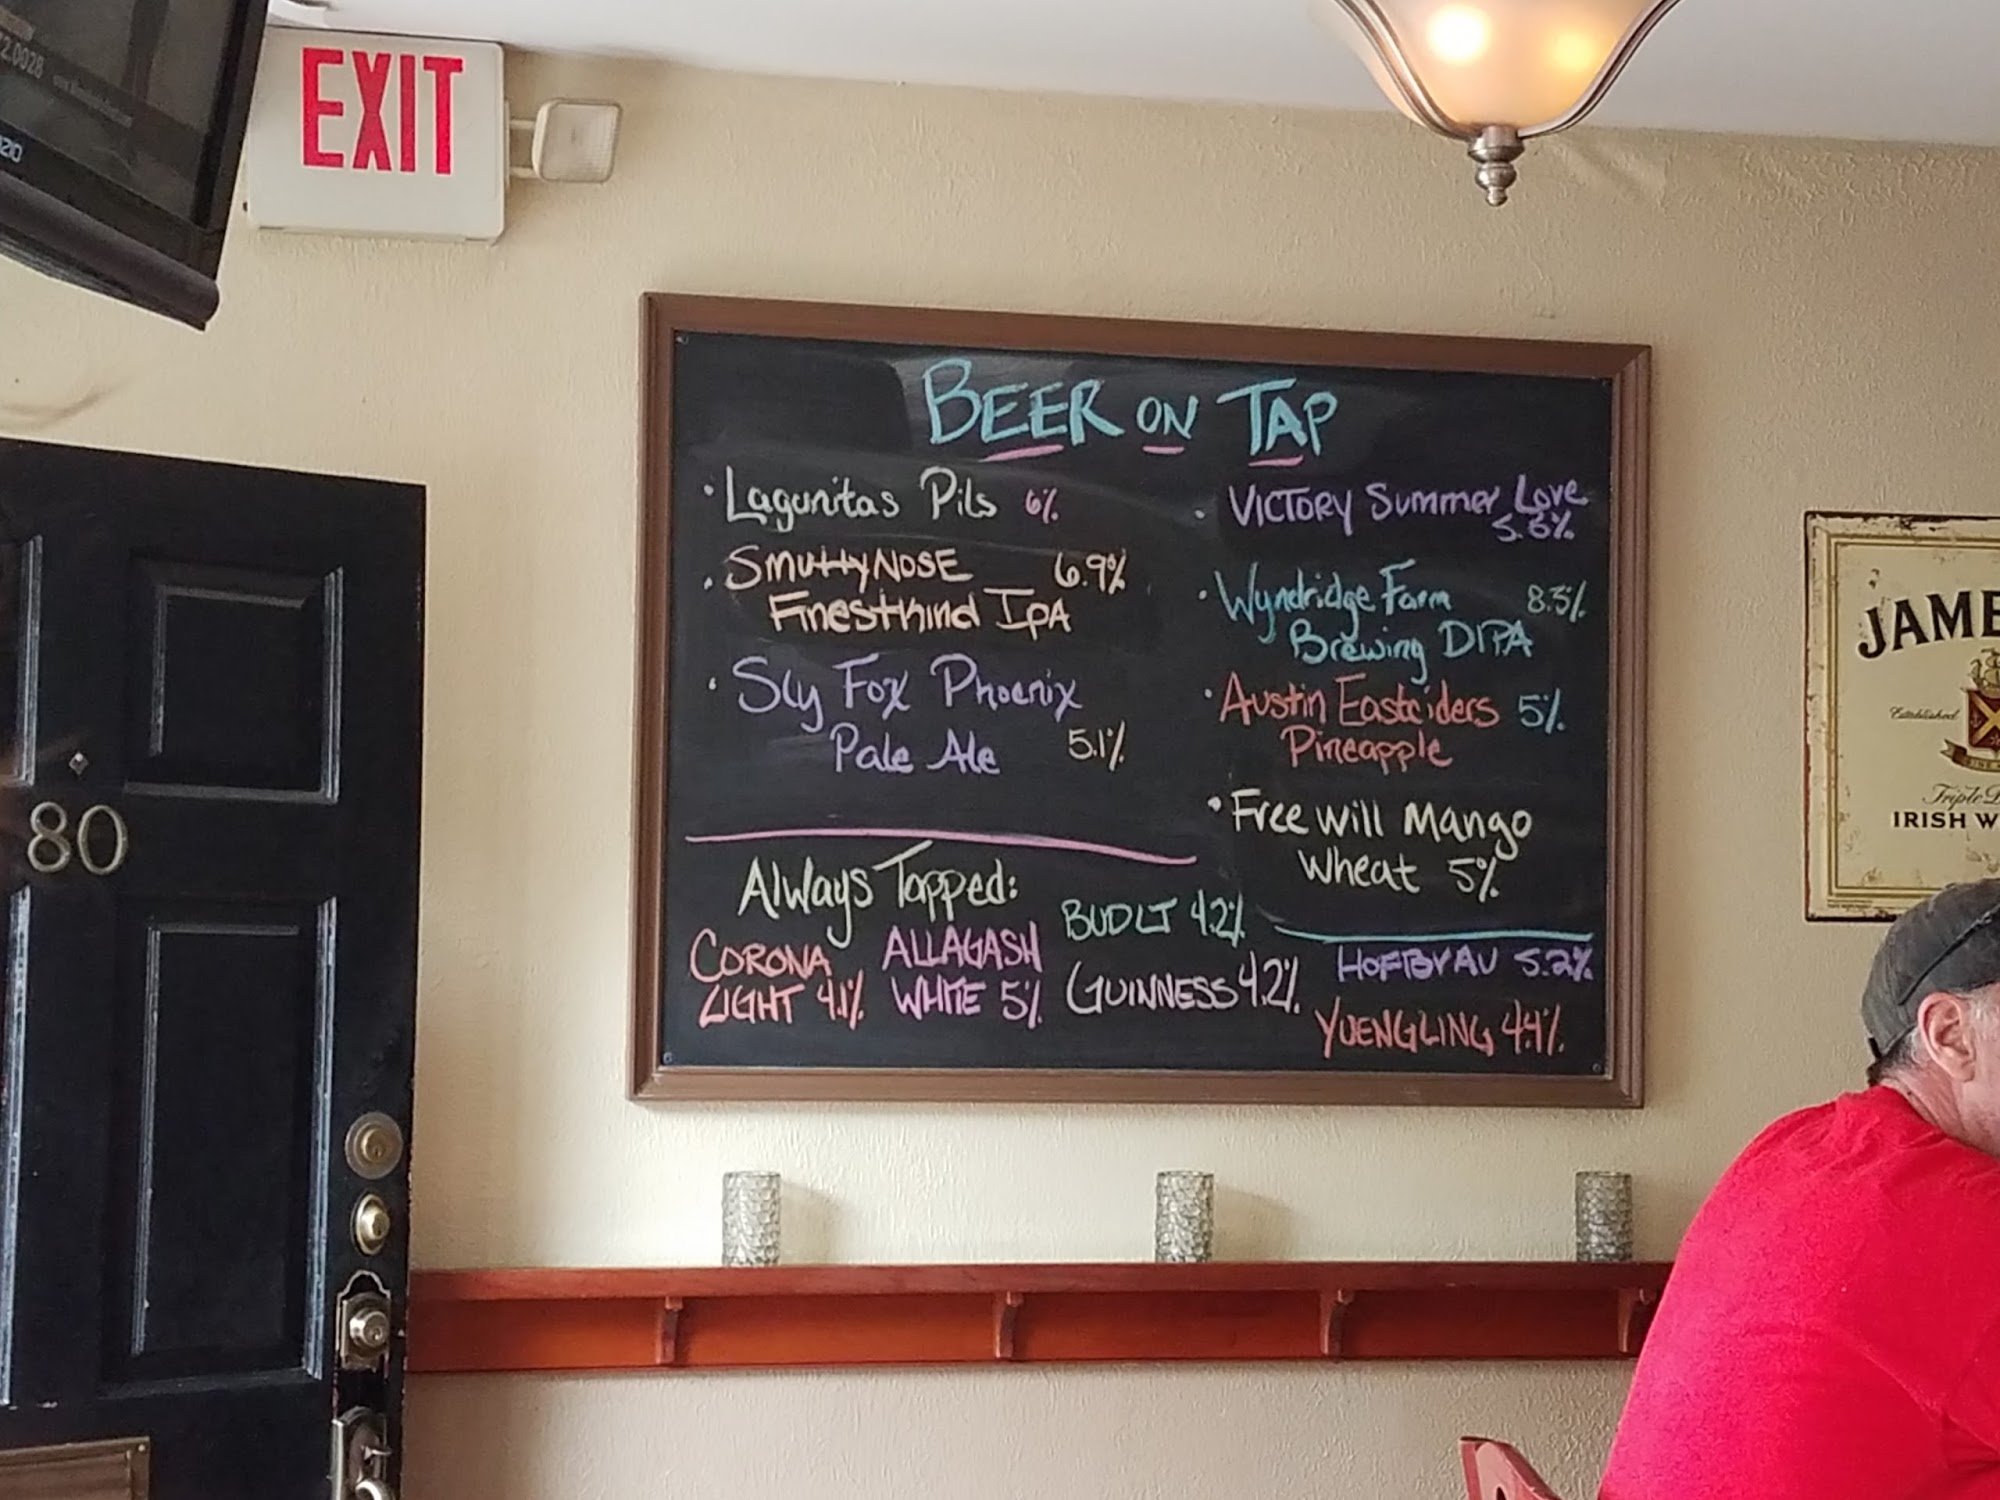 EXIT
BEER ON TAP
· Lagunitas Pils 6%
· SMUTTYNOSE 6.9%
FINESTKIND IPA
· Sly Fox Phoenix
Pale Ale 5.1%
· VICTORY Summer Love
· Wyndridge Farm 8.5%
Brewing DIPA
· Austin Eastciders 5%
Pineapple
· Free Will Mango
Wheat 5%
Always Tapped:
CORONA
LIGHT 4.1%
ALLAGASH
WHITE 5%
BUD LT 4.2%
GUINNESS 4.2%
HOFBrAU 5.2%
YUENGLING 4.4%
80
Established
IRISH